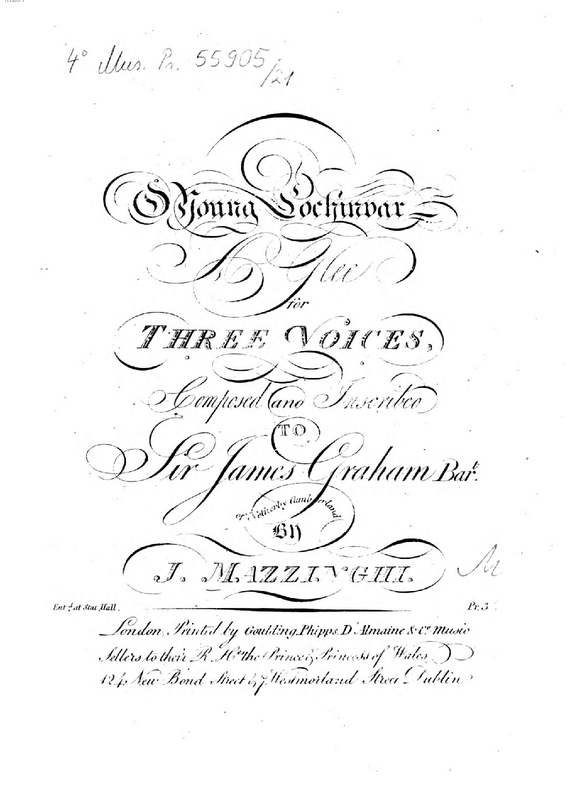 4° Mus. Pr. 55905/21
O Young Lochinvar
A Glee
for
THREE VOICES,
Composed and Inscribed
TO
Sir James Graham Bar.t
of Netherby Cumberland
BY
J. MAZZINGHI.
Ent.d at Stat. Hall.
Pr. 3
London, Printed by Goulding, Phipps, D'Almaine & Co. Music
Sellers to their R. H.ss the Prince & Princess of Wales
124, New Bond Street & 7, Westmorland Street Dublin